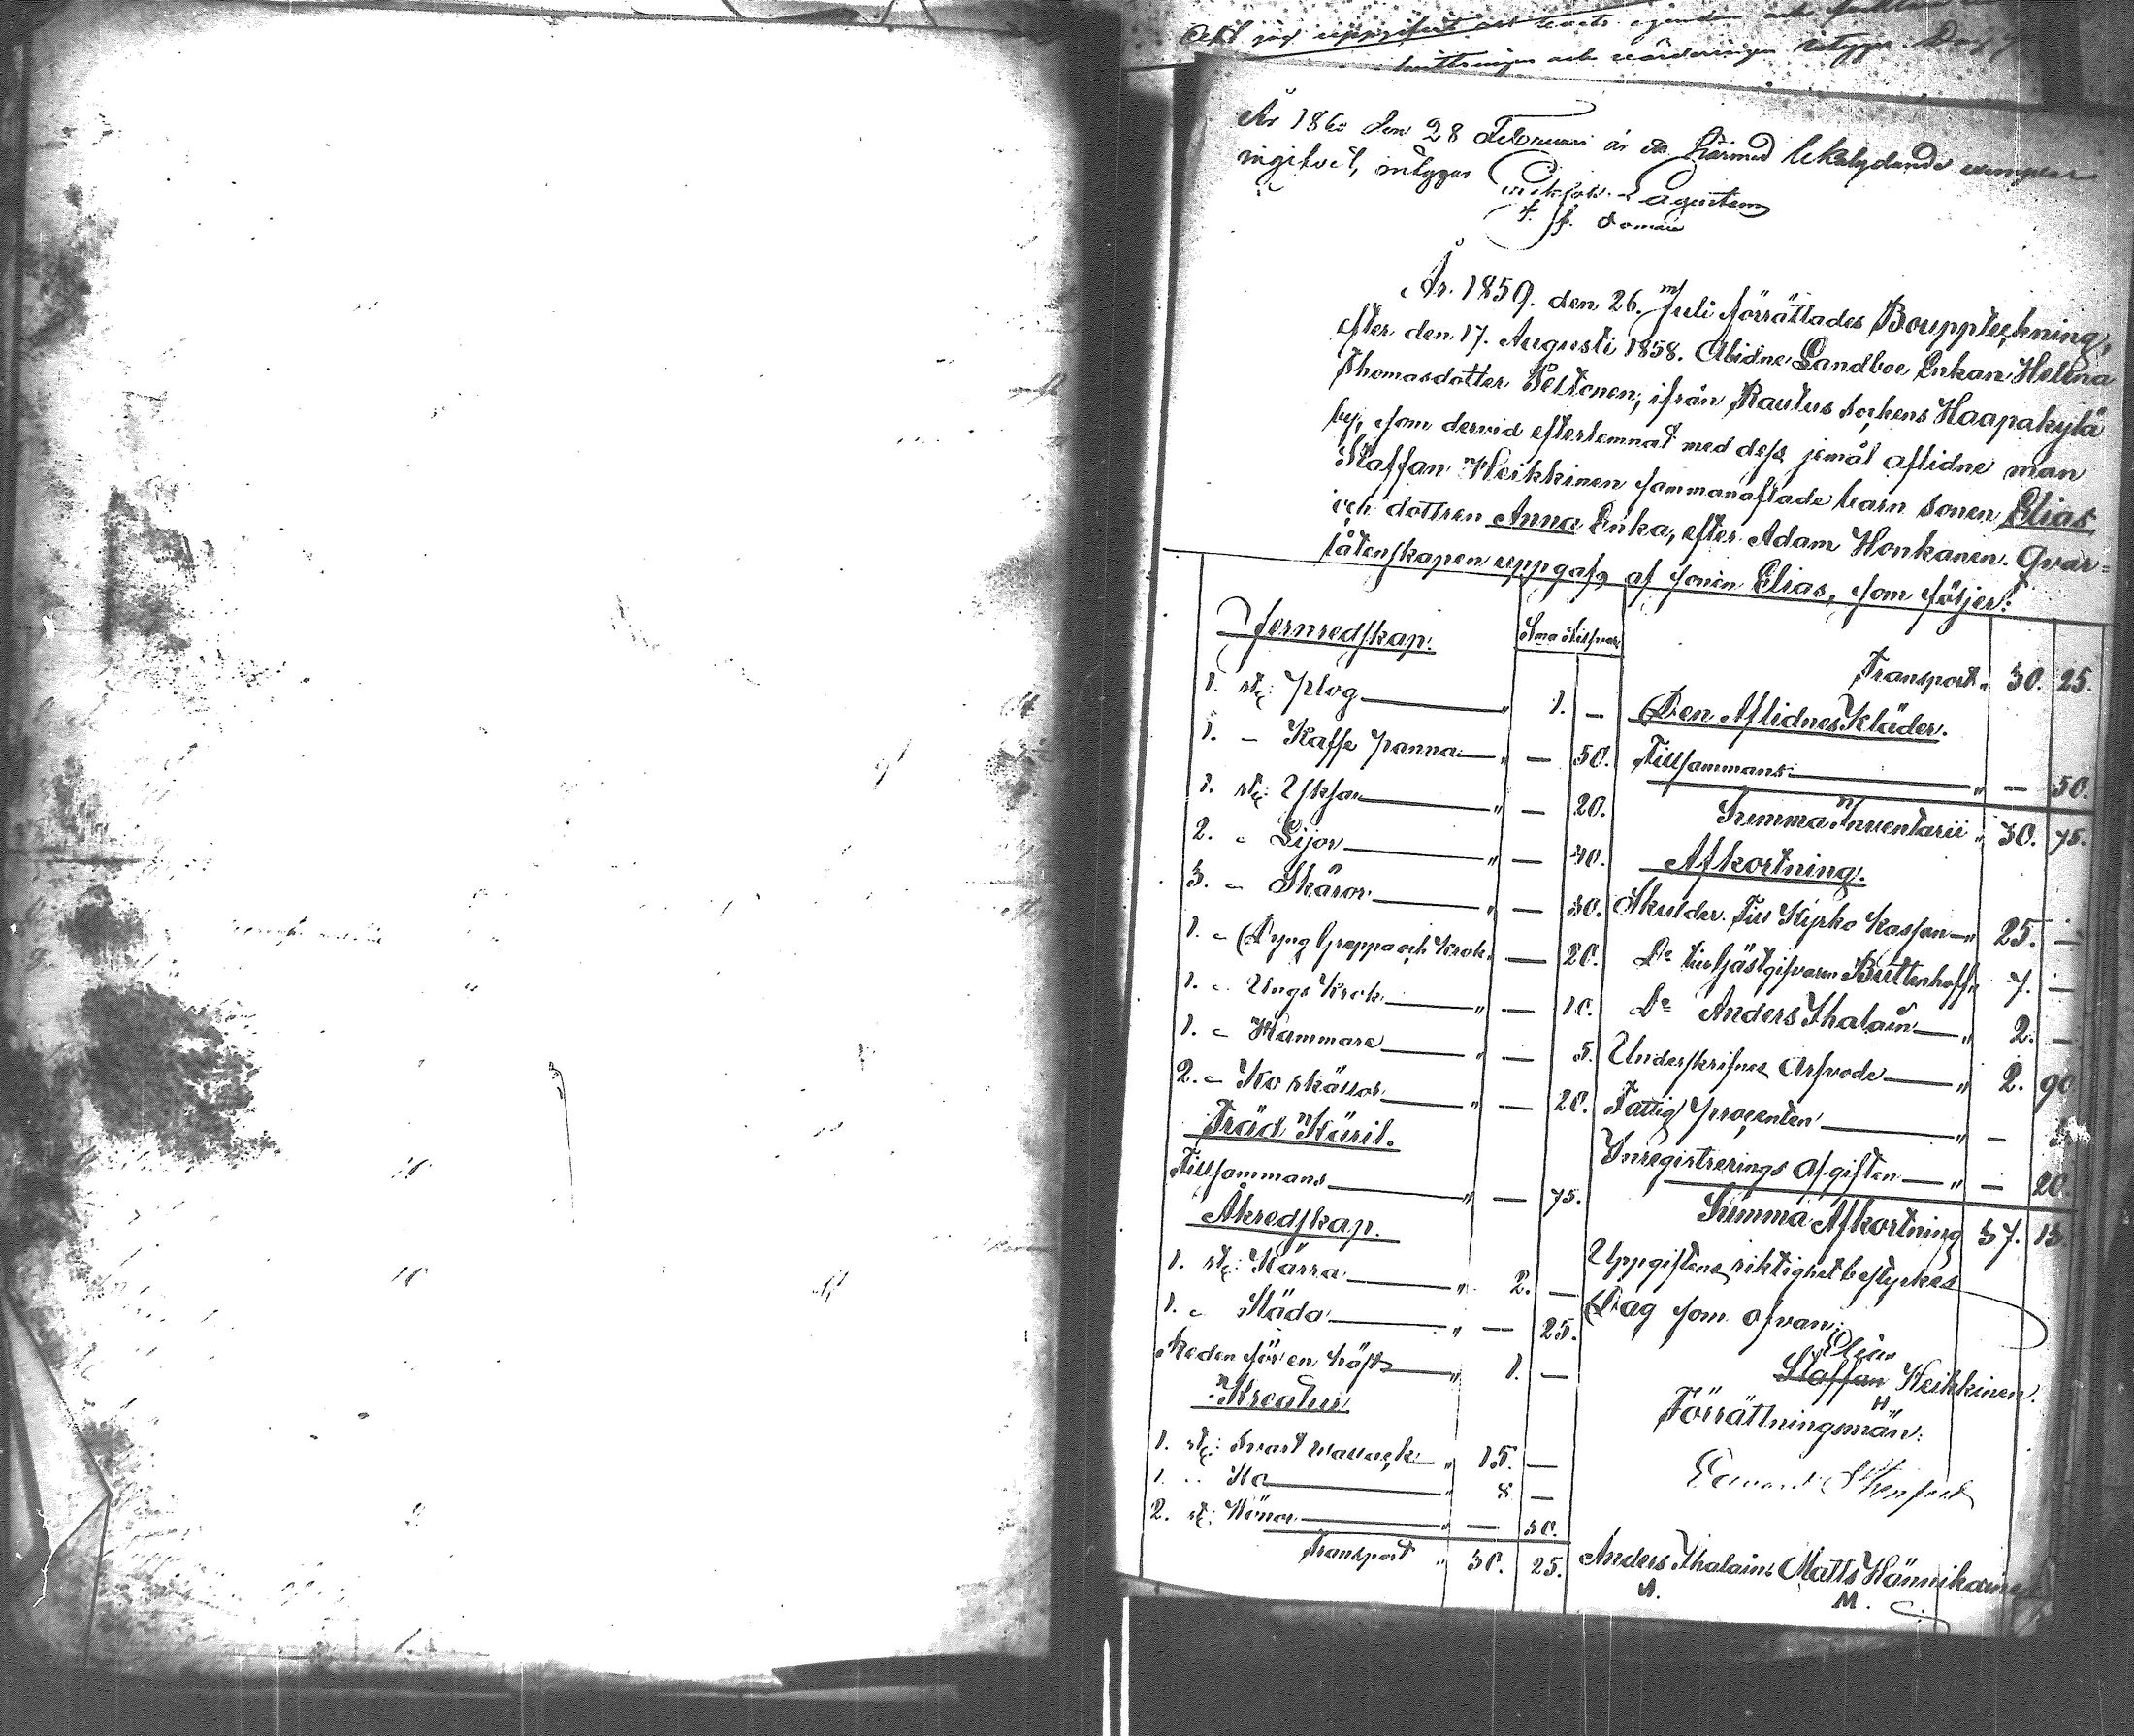 År 1860 den 28 Februari är ett härmed likalydande exemplar
ingifvit, intygar
f. f. domare
År 1859. den 26. Juli förrättades Bouppteckning,
efter den 17. Augusti 1858. Aflidne Landboe Enkan Helena
Thomasdotter Peltonen, ifrån Rautus Sockens Haapakylä
by, som dervid efterlemnat med dess jemål aflidne man
Staffan Heikkinen sammanaflade barn Sonen Elias
och dottren Anna Enka, efter Adam Honkanen. Qvar=
låtenskapen uppgafs af sonen Elias, som följer:
Jernredskap. Silfver
1. st: Plog " 1. —
1. — Kaffe panna " — 50.
1. st: Yksa " — 20.
2. " Lijor " — 40.
3. " Skäror " — 30.
1. " Dyng Greppa och Krok " — 20.
1. " Ungs Krok " — 10.
1. " Hammare " — 5.
2. " Ko skällor " — 20.
Träd Käril.
Tillsammans " — 75.
Åkredskap.
1. st: Kärra " 2. —
1. " Släda " — 25.
Reden för en häst " 1. —
Kreatur
1. st: Svart wallack " 15. —
1. " Ko " 8 —
2. st: Hönor " — 30.
Transport " 30. 25.
Transport " 30. 25.
Den Aflidnes Kläder.
Tillsammans " — 50.
Summa Inventarii " 30. 75.
Afkortning.
Skulder Till Kyrko Kassan " 25. —
Do till Gästgifvaren Buttenhoff " 7. —
Do Anders Ihalain " 2. —
Underskrifnes Arfvode " 2. 90
Fattig procenten " —
Inregistrerings Afgiften " — 20
Summa Afkortning 37. 15.
Uppgiftens riktighet bestyrkes
Dag som ofvan:
Elias
Staffan Heikkinen.
H
Förrättningsmän:
Anders Ihalain Matts Hännikainen
A. M.